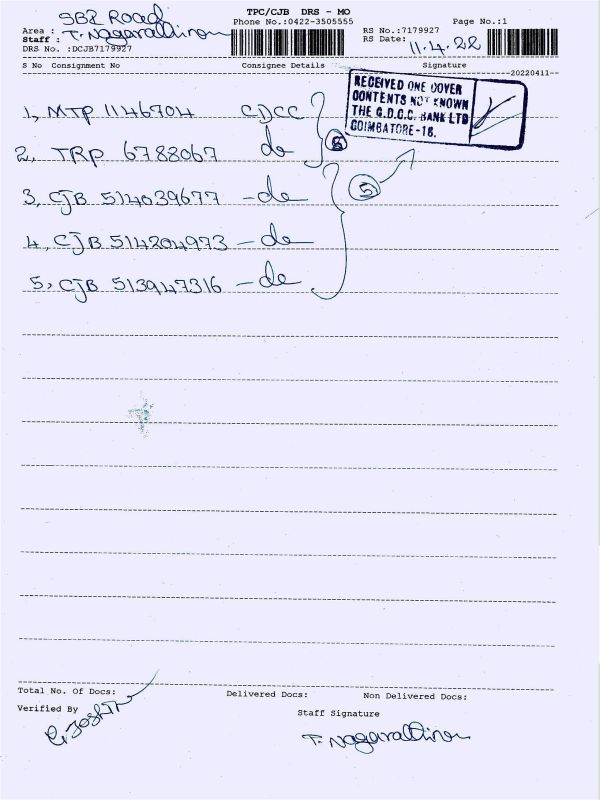 TPC/CJB DRS - MO
Area : SBI Road
Phone No.:0422-3505555
Page No.:1
Staff : T. Nagarathinam
RS No.:7179927
RS Date: 11.4.22
DRS No. :DCJB7179927
S No Consignment No Consignee Details Signature
--20220411--
RECEIVED ONE COVER
CONTENTS NOT KNOWN
THE C.D.C.C. BANK LTD
COIMBATORE-18.
1, MTP 1146704 CDCC
2, TRP 6788067 do
3, CJB 514039677 - do
5
4, CJB 514204973 - do
5, CJB 513947316 - do
Total No. Of Docs: Delivered Docs: Non Delivered Docs:
Verified By
Staff Signature
T. Nagarathinam